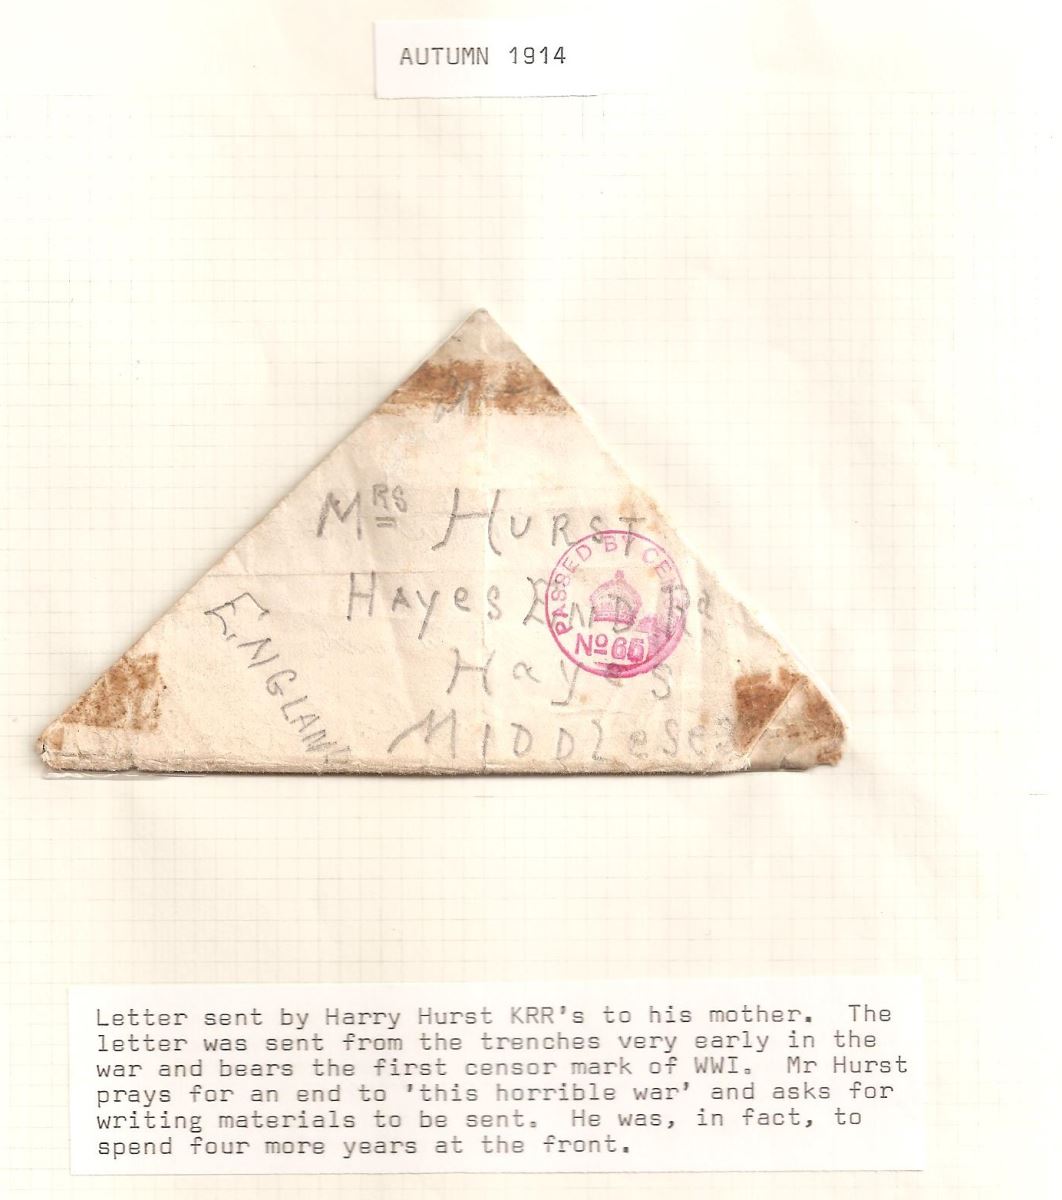 AUTUMN 1914
MRS HURST
HAYeS END Rd
Hayes
MIDDleSex
ENGLAND
PASSED BY CEN
No 65
Letter sent by Harry Hurst KRR's to his mother. The
letter was sent from the trenches very early in the
war and bears the first censor mark of WWI. Mr Hurst
prays for an end to 'this horrible war' and asks for
writing materials to be sent. He was, in fact, to
spend four more years at the front.